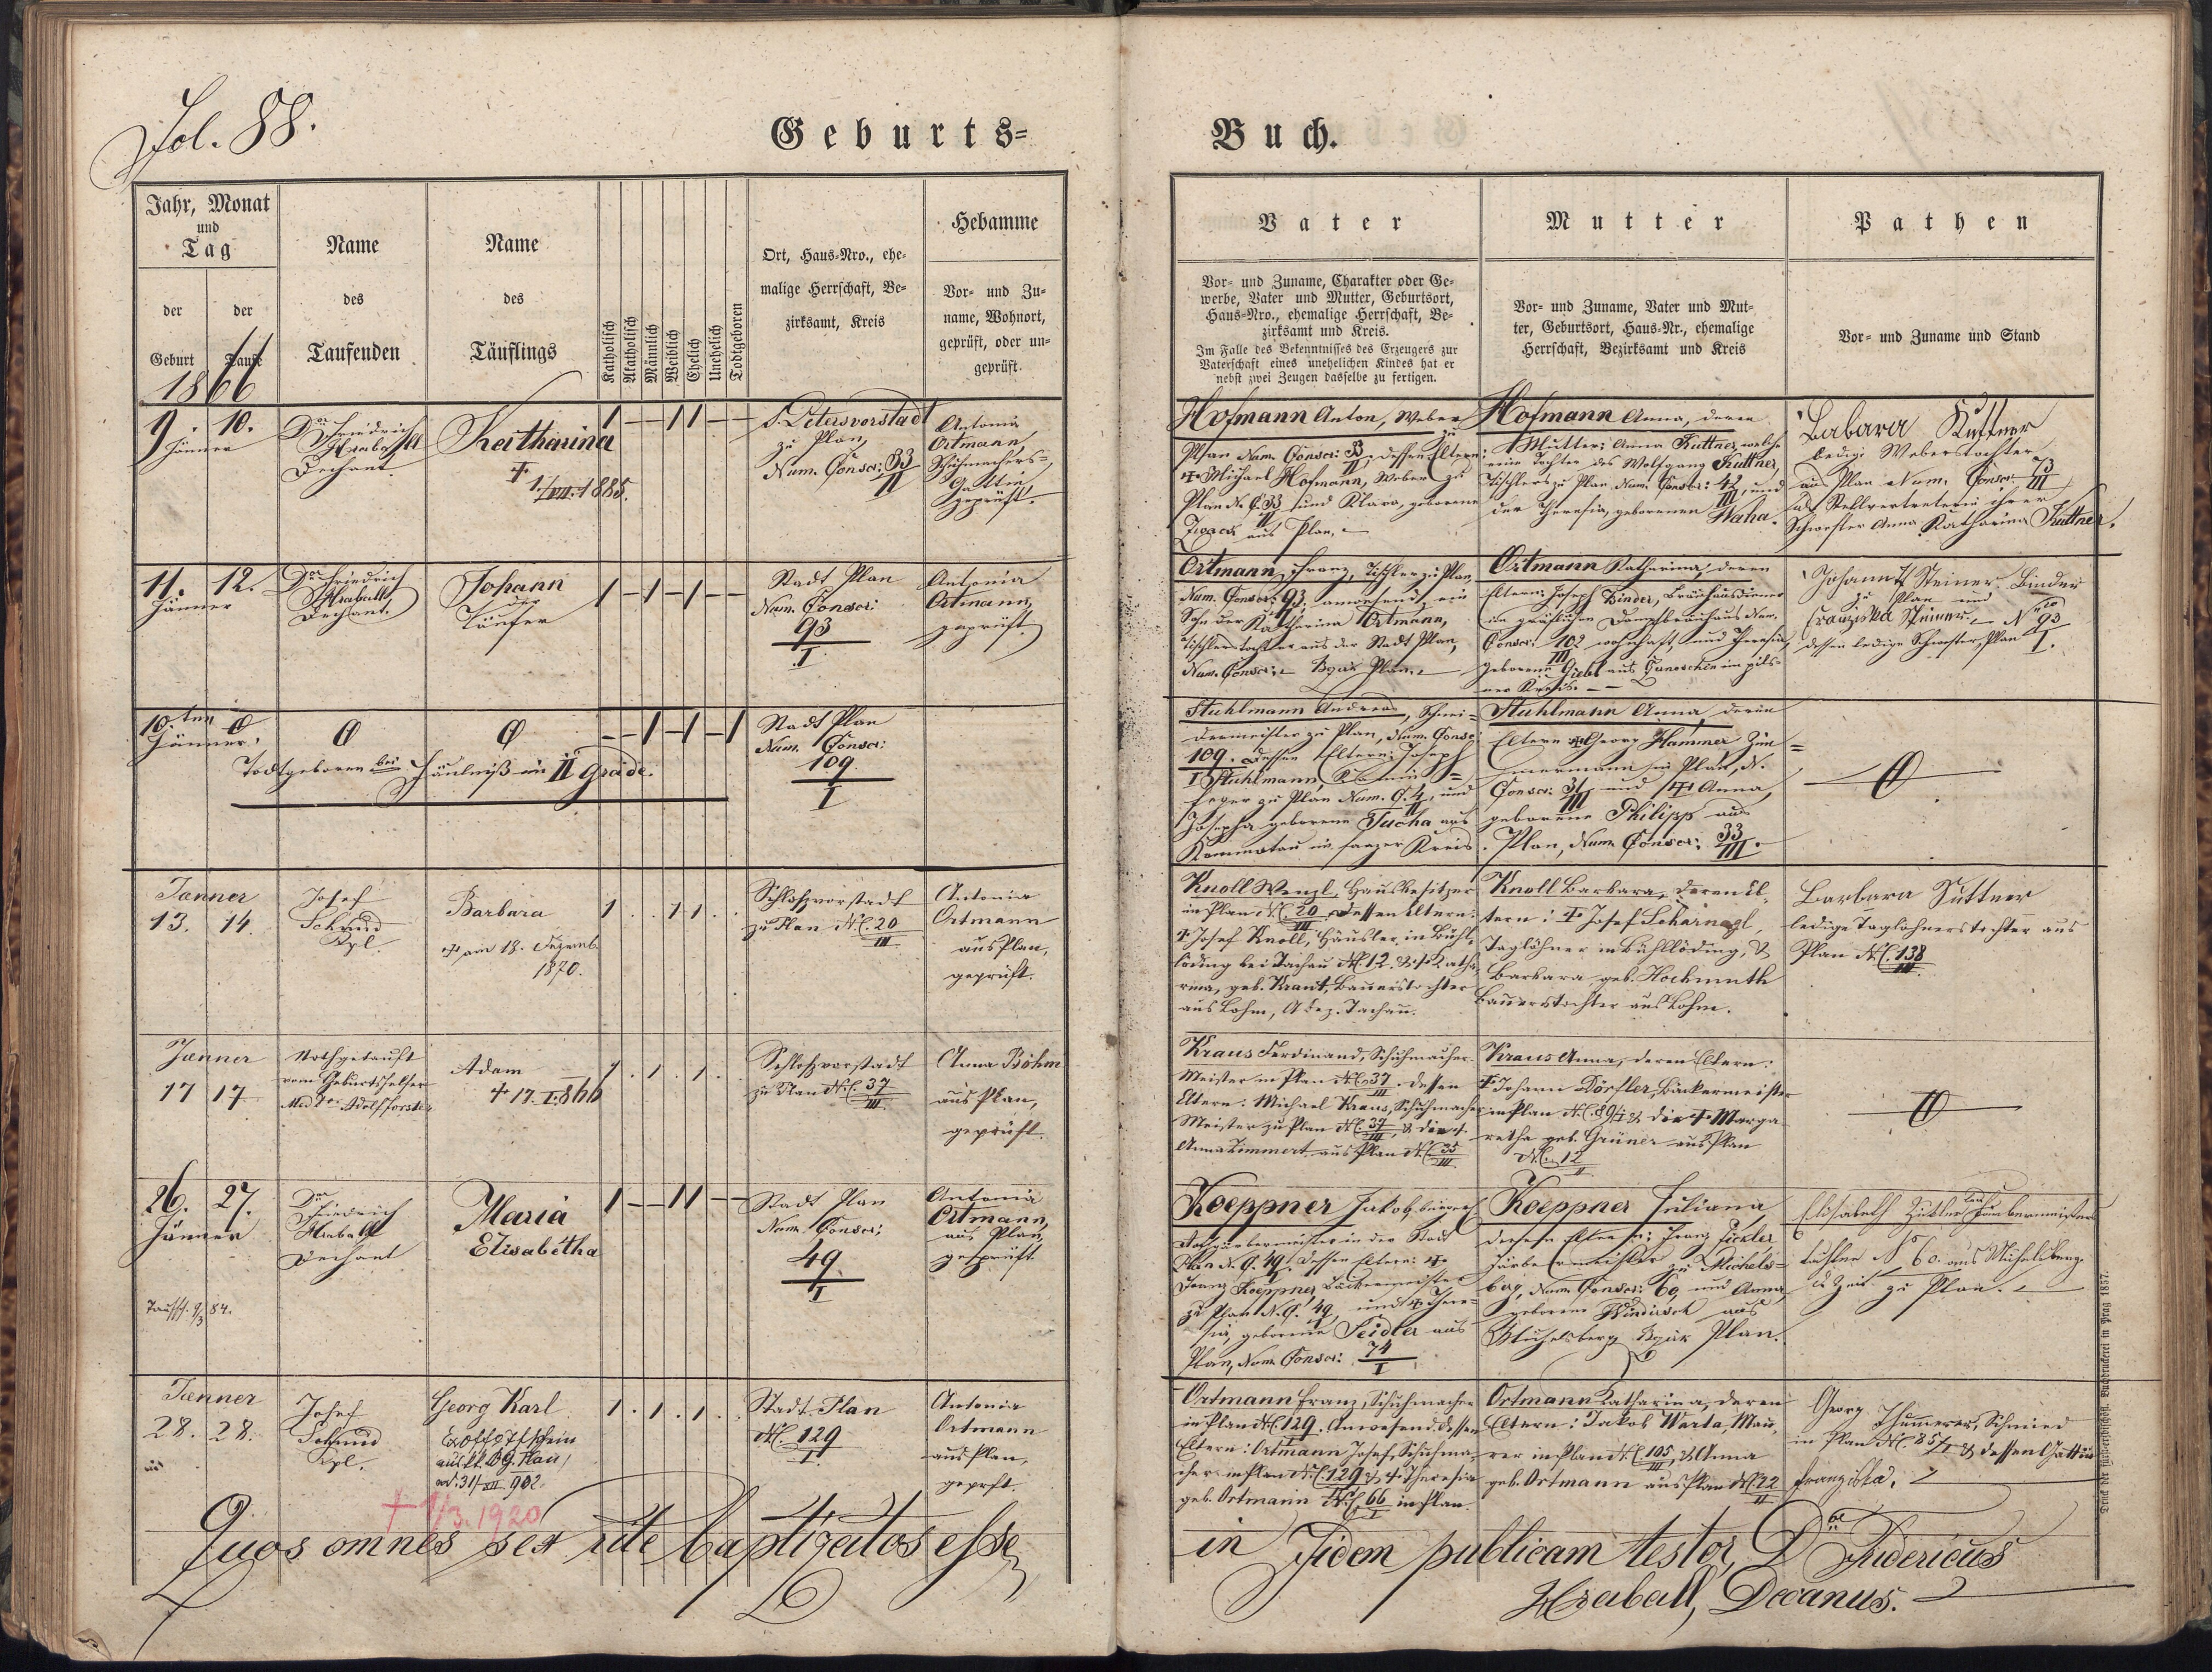 Fol. 88.
Geburts-
Buch.
Jahr, Monat
und
Tag
der
Geburt
der
Taufe
1866
Name
des
Taufenden
Name
des
Täuflings
Katholisch
Akatholisch
Männlich
Weiblich
Ehelich
Unehelich
Todtgeboren
Ort, Haus-Nro., ehe-
malige Herrschaft, Be-
zirksamt, Kreis
Hebamme
Vor- und Zu-
name, Wohnort,
geprüft, oder un-
geprüft.
Vater
Vor- und Zuname, Charakter oder Ge-
werbe, Vater und Mutter, Geburtsort,
Haus-Nro., ehemalige Herrschaft, Be-
zirksamt und Kreis.
Im Falle des Bekenntnisses des Erzeugers zur
Vaterschaft eines unehelichen Kindes hat er
nebst zwei Zeugen dasselbe zu fertigen.
Mutter
Vor- und Zuname, Vater und Mut-
ter, Geburtsort, Haus-Nr., ehemalige
Herrschaft, Bezirksamt und Kreis
Pathen
Vor- und Zuname und Stand
9. 10.
Jänner
Friedrich
Hraball
Dechant
Katharina
† 1/VII. 1885.
1 — 1 1 —
S. Petersvorstadt
zu Plan,
Num. Conscr: 33
II
Antonia
Ortmann,
Schuhmachers-
Gattin
geprüft.
Hofmann Anton, Weber zu
Plan Num. Conscr: 33/II, dessen Eltern:
† Michael Hofmann, Weber zu
Plan N. C. 33/II und Klara, geborene
aus Plan.
Hofmann Anna, deren
Mutter: Anna Kuttner, welche
eine Tochter des Wolfgang Kuttner,
Tischlers zu Plan Num. Conscr: 42/III, und
der Theresia, geborenen Waha.
Babara Kuttner
ledige Weberstochter
aus Plan Num. Conscr 73/III
als Stellvertreterin ihrer
Schwester Anna Katharina Kuttner.
11. 12.
Jänner
Friedrich
Hraball
Dechant.
Johann
der
Täufer
1 — 1 — 1 —
Stadt Plan
Num. Conscr:
93
I
Antonia
Ortmann,
geprüft
Ortmann, Franz, Tischler zu Plan
Num. Conscr: 93, anwesend, ein
Sohn der Katharina Ortmann,
Tischlerstochter aus der Stadt Plan,
Num. Conscr: Bezirk Plan.
Ortmann Katharina, deren
Eltern: Joseph Binder, Bräuhausdiener
im gräflichen Dampfbräuhaus Num.
Conscr: 102/III wohnhaft, und Theresia,
geborene Giebl aus im Pils-
ner Kreis.
Johann Steiner Binder
zu Plan und
Franziska Steiner, N 93/I
dessen ledige Schwester, Plan
10.ten
Jänner.
Todtgeboren bei Fäulniß im II Grade.
— — 1 — 1 — 1
Stadt Plan
Num. Conscr:
109
I
Stuhlmann Andreas, Schnei-
dermeister zu Plan, Num. Conscr:
109/I. dessen Eltern: Joseph
Stuhlmann, Kamin-
feger zu Plan Num. C. 4/II, und
Josepha geborene Tucha aus
Kommotau im Saazer Kreis.
Stuhlmann Anna, deren
Eltern Georg Hammer Zim-
mermann in Plan, N.
Conscr: 31/III und † Anna,
geborene Philipp aus
Plan, Num. Conscr: 33/III.
Jänner
13. 14.
Josef
Schmid
Kpl.
Barbara
† am 18. Dezemb.
1870.
1 . . 1 1 .
Schloßvorstadt
zu Plan N.C. 20
III
Antonia
Ortmann
aus Plan,
geprüft.
Knoll Wenzl, Hausbesitzer
in Plan N.C. 20/III. Dessen Eltern:
† Josef Knoll, Häusler in Bühl-
löding bei Tachau N.C. 12. & † Katha-
rina, geb. Kraut, Bauerstochter
aus Lohm, Abez. Tachau.
Knoll Barbara, deren El-
tern: † Josef Scharnagl,
Taglöhner in Bühllöding, &
Barbara geb. Hochmuth
Bauerstochter aus Lohm.
Barbara Suttner
ledige Taglöhnerstochter aus
Plan N.C. 138
III
Jänner
17 17
Nothgetauft
vom Geburtshelfer
Med. Dor Adolf Forster
Adam
† 17. I. 866
1 . 1 . 1 .
Schloßvorstadt
zu Plan N.C. 37
III
Anna Böhm
aus Plan,
geprüft.
Kraus Ferdinand, Schuhmacher-
Meister in Plan N.C. 37/III. Dessen
Eltern: Michael Kraus, Schuhmacher
Meister zu Plan N.C. 37/III, & die †
Anna Lommert aus Plan N.C. 35/III
Kraus Anna, deren Eltern:
† Johann Dörfler, Bäckermeister
in Plan N.C. 89/I & die † Marga-
retha geb. Grüner aus Plan
N.C. 12
II
26. 27.
Jänner
Friedrich
Hraball
Dechant
Taufsch. 9/3 84.
Maria
Elisabetha
1 — 1 1 —
Stadt Plan
Num. Conscr:
49
I
Antonia
Ortmann,
aus Plan
geprüft
Koeppner Jakob, bürgerl.
in der Stadt
Plan N. C. 49/I dessen Eltern: †
Franz Koeppner Bäckermeister
zu Plan N. C. 49/I und † There-
sia, geborene Seidler aus
Plan, Num. Conscr: 74
I
Koeppner Juliana
deren Eltern: Franz Zickler
Färbermeister zu Michels-
berg, Num. Conscr: 60, und Anna
geborene Windirsch aus
Michelsberg Bezirk Plan.
Elisabeth Zickler Färbermeisters
tochter N 60. aus Michelsberg.
d. Zeit zu Plan.
Jänner
28. 28.
Josef
Schmid
Kpl.
Georg Karl
Exoffotfschein
aus k.k. BG. Plan
vd. 31/VII. 902.
† 1/3. 1920
1 . 1 . 1 .
Stadt Plan
N.C. 129
I
Antonia
Ortmann
aus Plan,
geprft.
Ortmann Franz, Schuhmacher
in Plan N.C. 129. Anwesend. dessen
Eltern: Ortmann Josef, Schuhma-
cher in Plan N.C. 129 & † Theresia
geb. Ortmann N.C. 66/I in Plan.
Ortmann Katharina, deren
Eltern: Jakob Warta, Mau-
rer in Plan N.C. 105/III, & Anna
geb. Ortmann aus Plan N.C. 22
II
Georg Thummerer, Schmied
in Plan N.C. 85/I & dessen Gattin
Franziska.
Quos omnes sex rite baptizatos esse
in Fidem publicam testor, Fridericus
Hraball, Decanus.
Druck der fürsterzbischöfl. Buchdruckerei in Prag 1857.